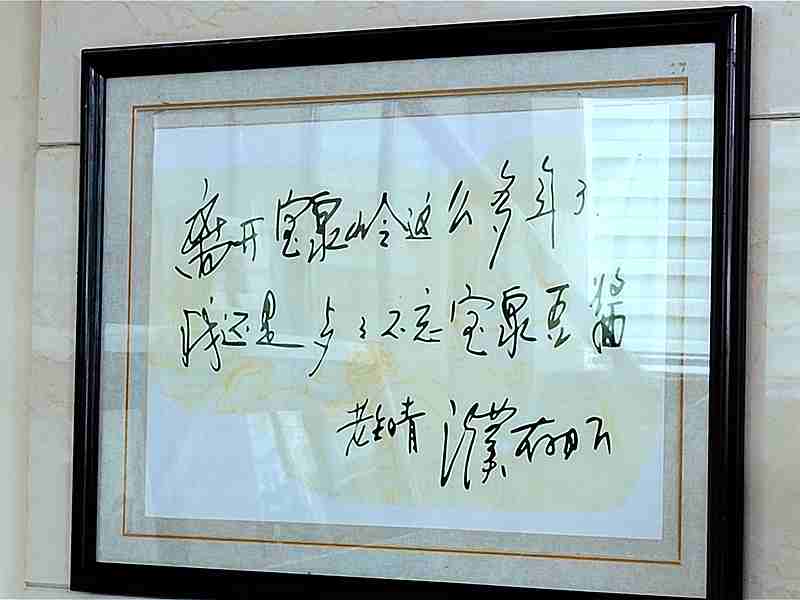 离开宝泉岭这么多年了
我还是念念不忘宝泉豆酱
老知青 濮存昕